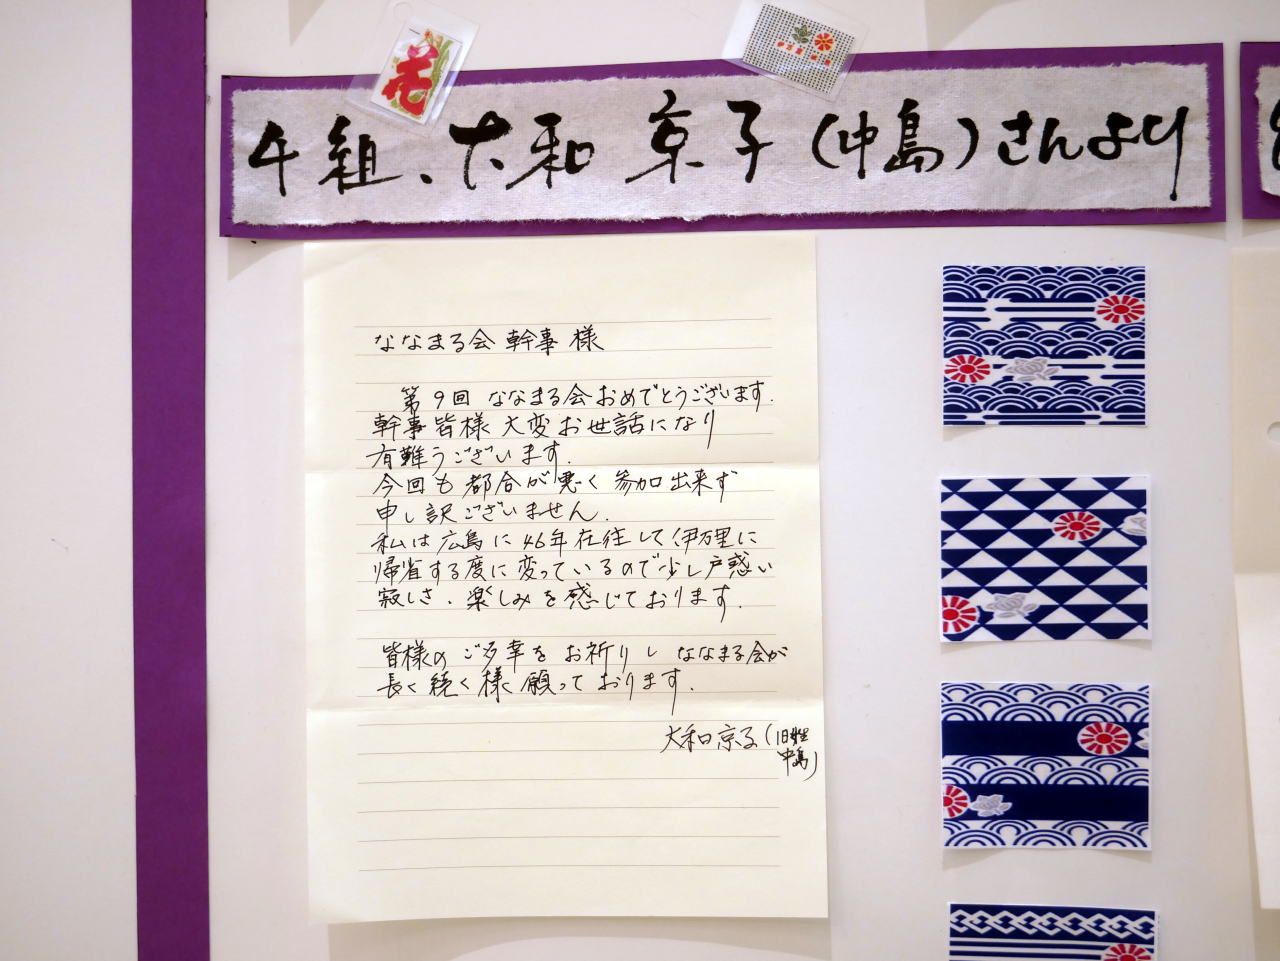 4組、大和 京子(中島)さんより
ななまる会 幹事 様
第9回 ななまる会おめでとうございます.
幹事皆様 大変お世話になり
有難うございます.
今回も都合が悪く参加出来ず
申し訳ございません.
私は広島に46年在住して伊万里に
帰省する度に変っているので少し戸惑い
寂しさ.楽しみを感じております.
皆様のご多幸をお祈りし ななまる会が
長く続く様願っております.
大和京子(旧姓
中島)